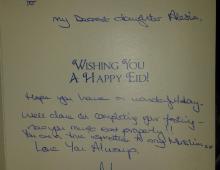 to
my Dearest daughter
WISHING YOU
A HAPPY EID!
Hope you have a wonderful day.
Well done on completing your fasting –
now you must eat properly!
You are a true
to any Muslim
Love You Always